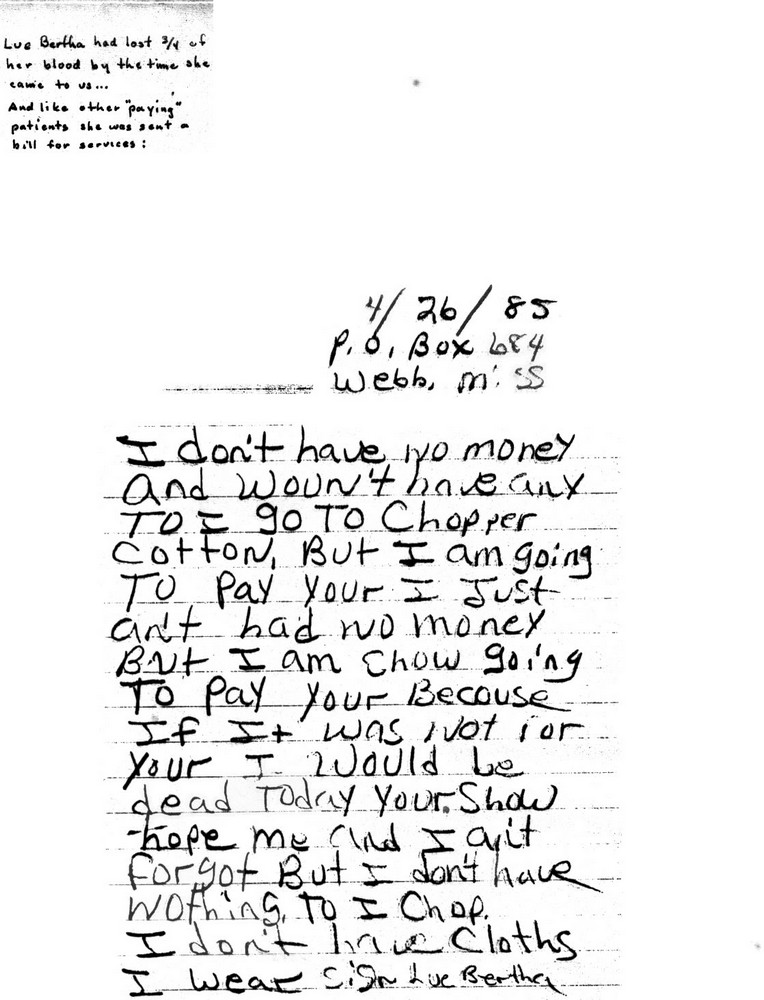 Lue Bertha had lost 3/4 of
her blood by the time she
came to us...
And like other "paying"
patients she was sent a
bill for services:
4/26/85
P.O. Box 684
Webb, Miss
I don't have no money
and woun't have any
To I go To Chopper
cotton, But I am going
To pay your I Just
ant had no money
But I am show going
To pay your Becouse
If It was not for
your I would be
dead Today your Show
hope me and I ait
forgot But I don't have
nothing, To I Chop.
I don't have Cloths
I wear Sign Lue Bertha